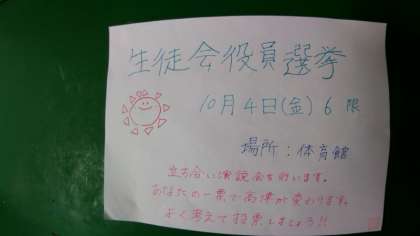 生徒会役員選挙
10月4日(金)6限
場所:体育館
立ち合い演説会を行います。
あなたの一票で高津が変わります。
よく考えて投票しましょう!!